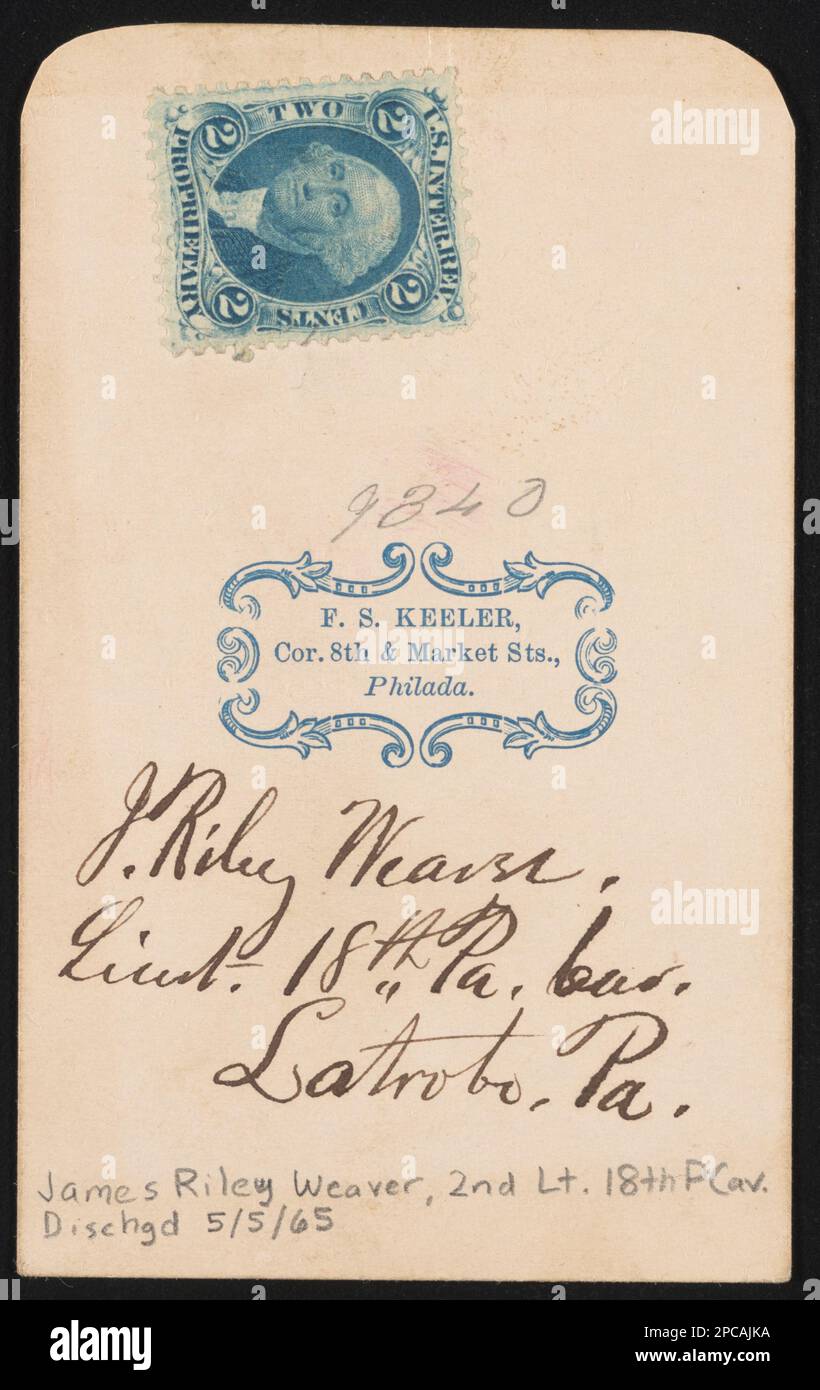 TWO
U.S. INTER. REV.
PROPRIETARY
CENTS
2
2
2
2
9340
F. S. KEELER,
Cor. 8th & Market Sts.,
Philada.
J. Riley Weaver.
Lieut. 18th Pa. Cav.
Latrobe, Pa.
James Riley Weaver, 2nd Lt. 18th P Cav.
Dischgd 5/5/65
alamy
a
a
a
a
a
alamy
a
alamy
Image ID: 2PCAJKA
www.alamy.com